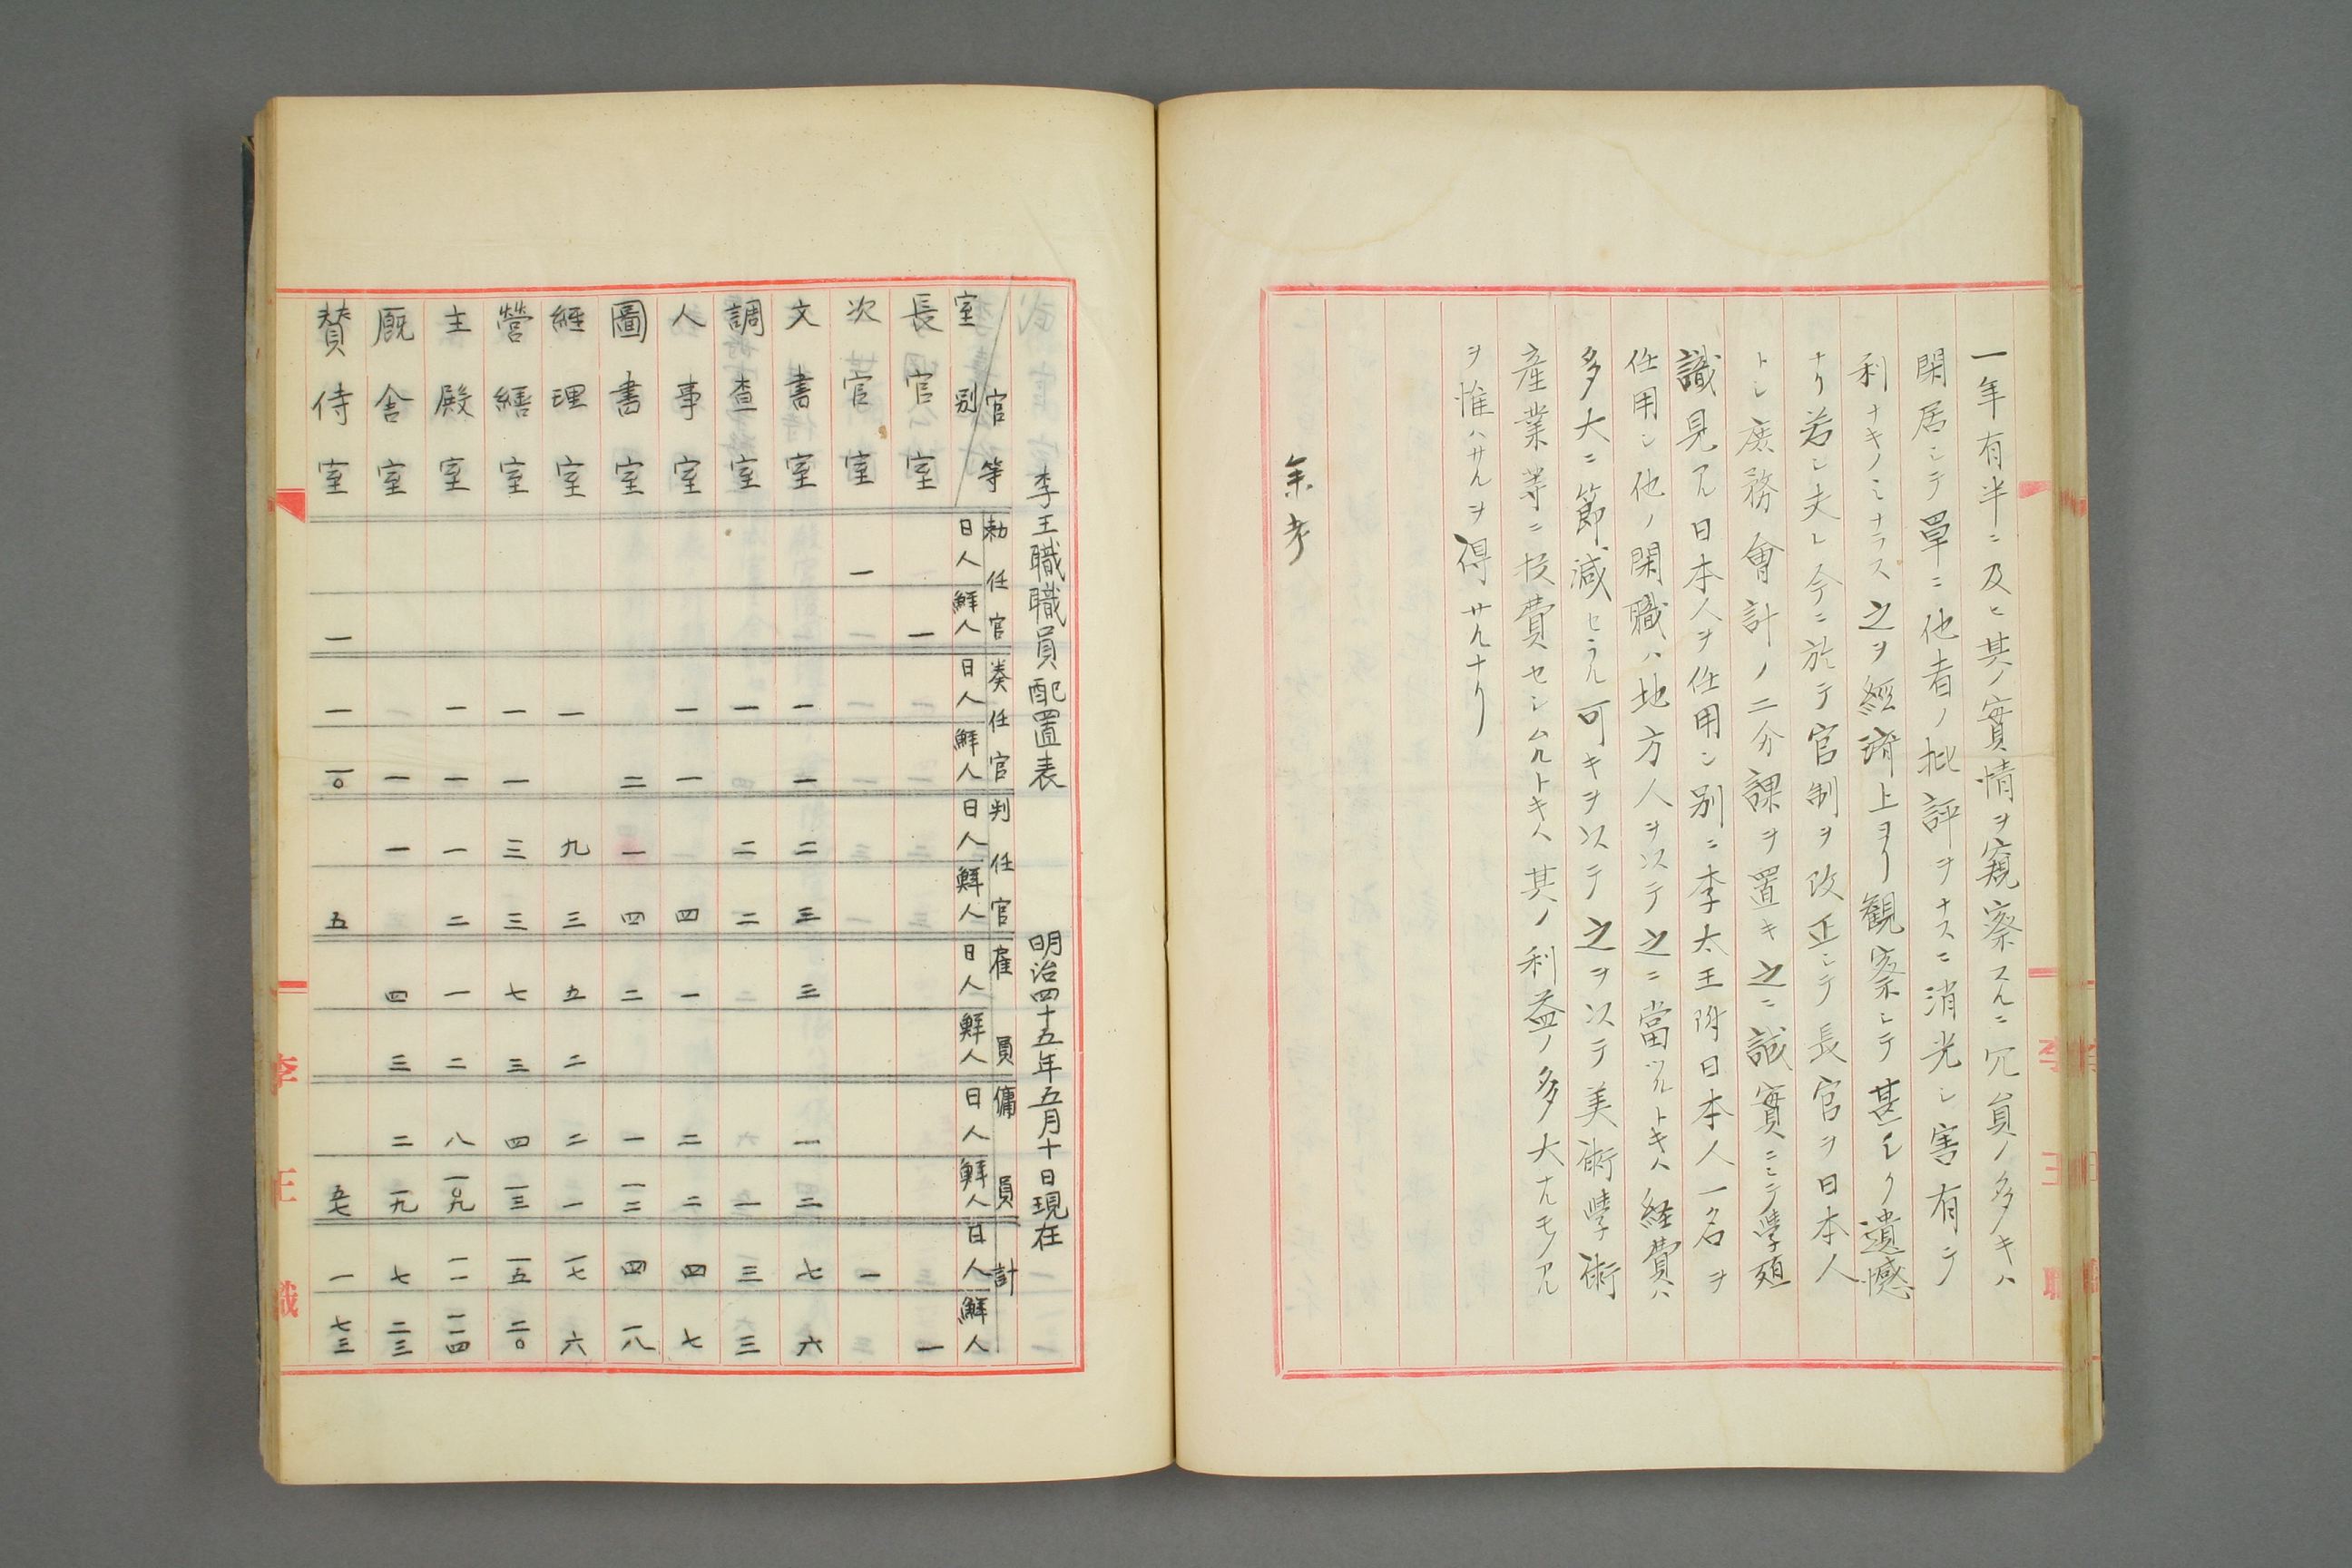 一年有半ニ及ヒ其ノ實情ヲ窺察スルニ冗員ノ多キハ
閑居シテ單ニ他者ノ批評ヲナスニ消光シ害有テ
利ナキノミナラス之ヲ經濟上ヨリ観察シテ甚シク遺憾
ナリ若シ夫レ今ニ於テ官制ヲ改正シテ長官ヲ日本人
トシ庶務會計ノ二分課ヲ置キ之ニ誠實ニシテ學殖
識見アル日本人ヲ任用シ別ニ李太王附日本人一名ヲ
任用シ他ノ閑職ハ地方人ヲ以テ之ニ當ツルトキハ経費ハ
多大ニ節減セラル可キヲ以テ之ヲ以テ美術學術
産業等ニ投費セシムルトキハ其ノ利益ノ多大ナルモノアル
ヲ惟ハサルヲ得サルナリ
参考
李王職
李王職職員配置表 明治四十五年五月十日現在
官等 勅任官 奏任官 判任官 雇員 傭員 計
室別 日人 鮮人 日人 鮮人 日人 鮮人 日人 鮮人 日人 鮮人 日人 鮮人
長官室 一 一
次官室 一 一
文書室 一 一 二 三 三 一 二 七 六
調査室 一 二 二 一 三 三
人事室 一 一 四 一 二 二 四 七
圖書室 二 一 四 二 一 一二 四 一八
経理室 一 九 三 五 二 二 一 一七 六
營繕室 一 一 三 三 七 三 四 一三 一五 二〇
主殿室 一 一 一 二 一 二 八 一〇九 一一 一一四
厩舎室 一 一 四 三 二 一九 七 二三
賛侍室 一 一 一〇 五 五七 一 七三
李王職